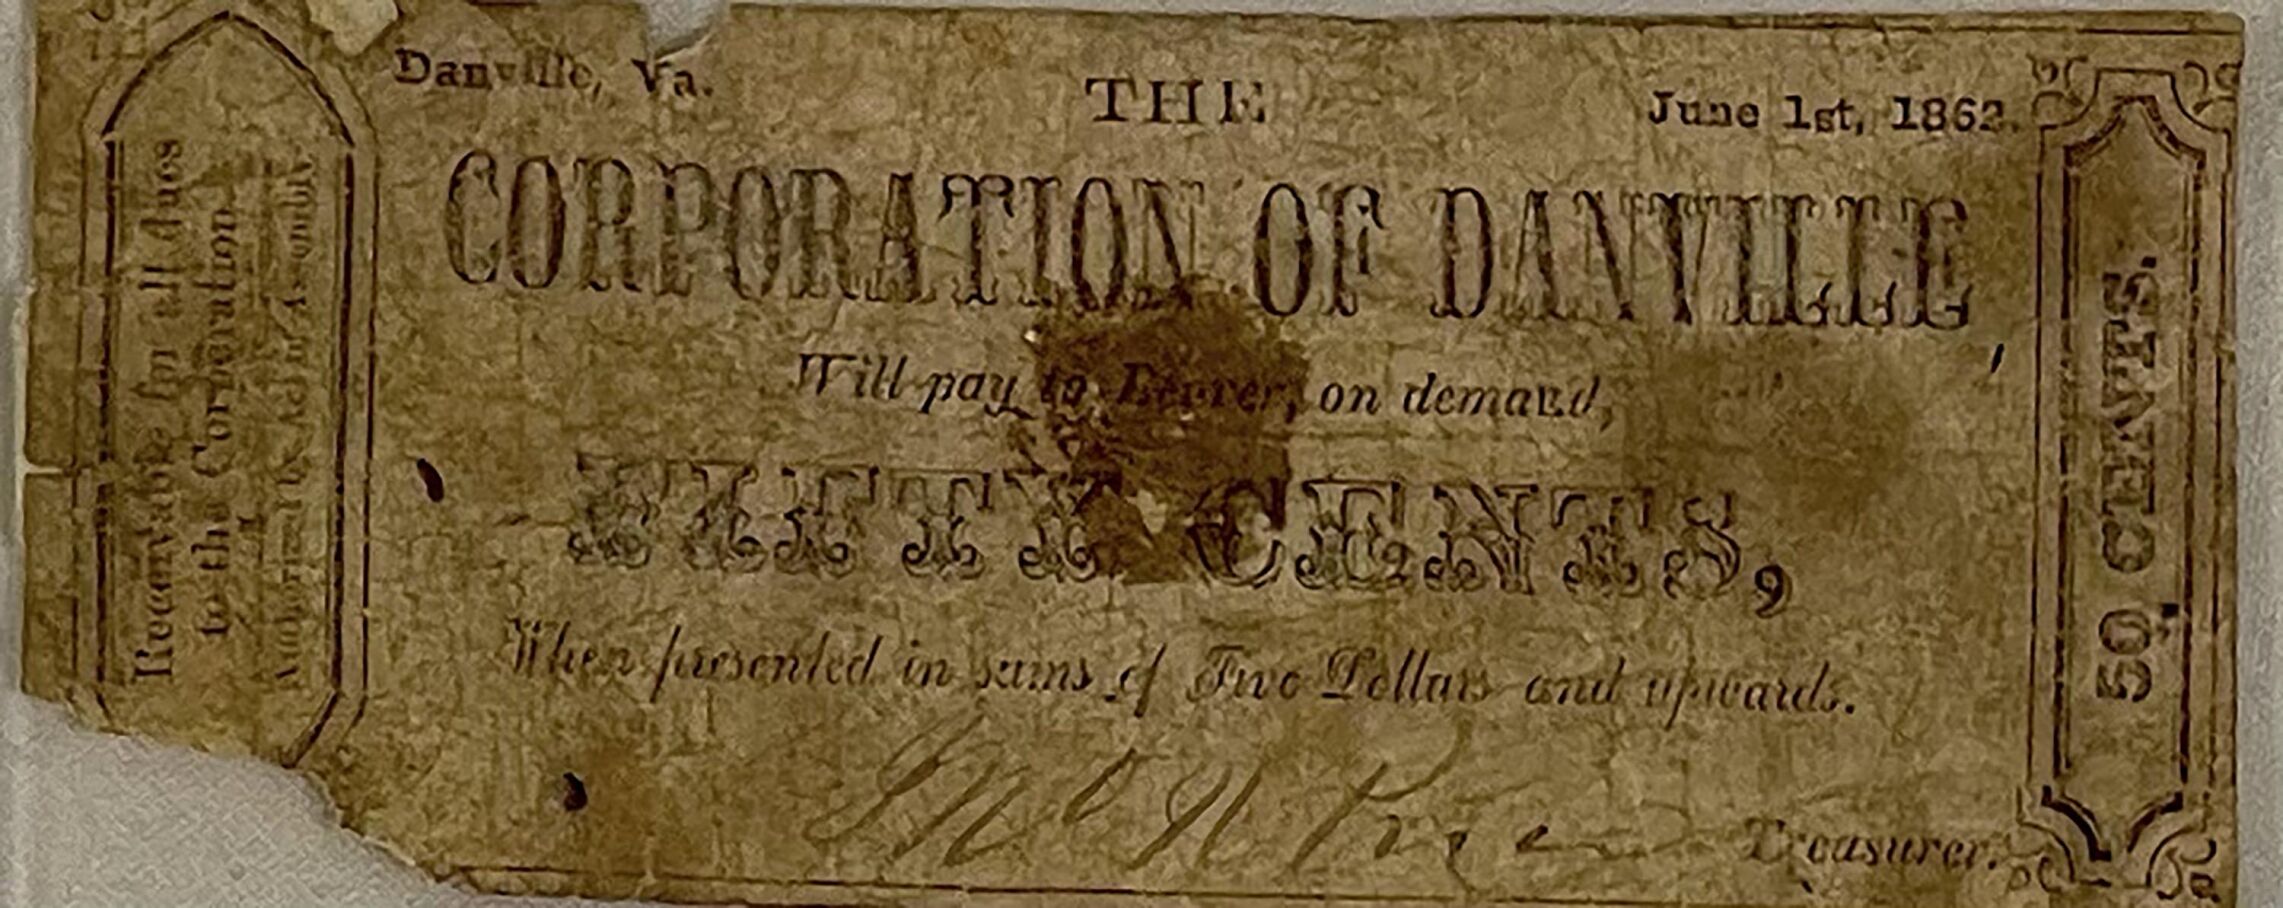 Danville, Va.
THE
June 1st, 1862.
CORPORATION OF DANVILLE
Will pay to Bearer, on demand,
FIFTY CENTS,
When presented in sums of Two Dollars and upwards.
Treasurer.
Receivable for all dues
to the Corporation.
Authorized by Act of Assembly
50 CENTS.